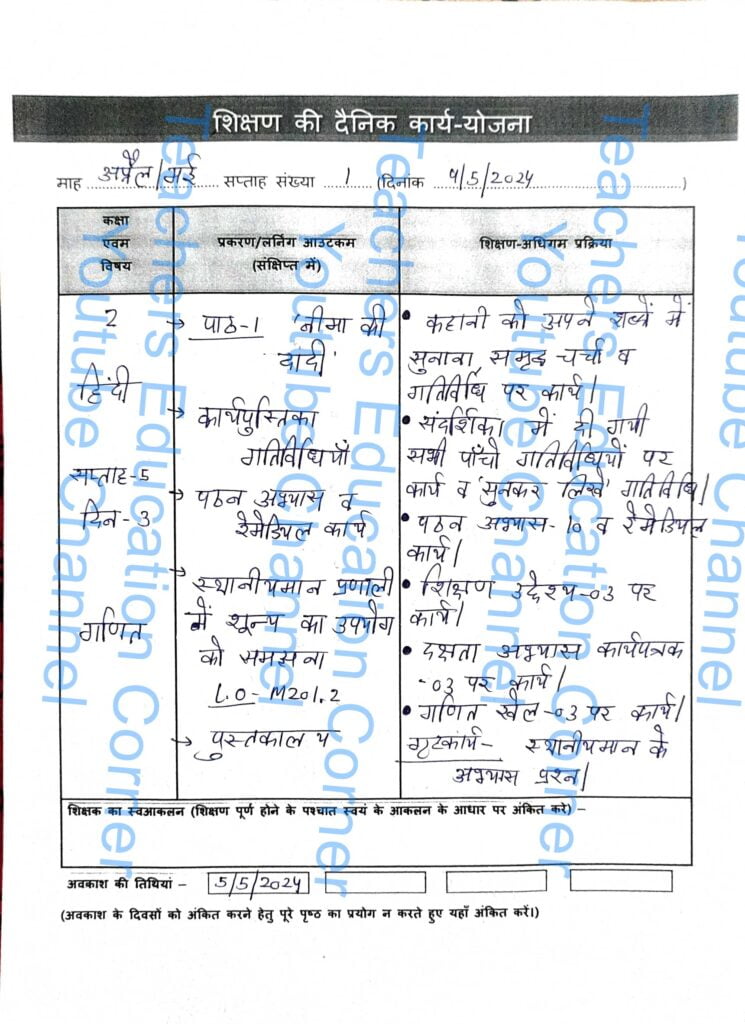 शिक्षण की दैनिक कार्य-योजना
माह अप्रैल/मई सप्ताह संख्या 1 (दिनांक 4/5/2024)
कक्षा एवम विषय
प्रकरण/लर्निंग आउटकम (संक्षिप्त में)
शिक्षण-अधिगम प्रक्रिया
2
हिंदी
सप्ताह-5
दिन-3
गणित
→ पाठ-1 'नीमा की
दादी'
→ कार्यपुस्तिका
गतिविधियाँ
→ पठन अभ्यास व
रेमेडियल कार्य
→ स्थानीयमान प्रणाली
में शून्य का उपयोग
को समझना
L.O-M201.2
→ पुस्तकालय
• कहानी को अपने शब्दों में
सुनाना समृद्ध चर्चा व
गतिविधि पर कार्य।
• संदर्शिका में दी गयी
सभी पाँचो गतिविधियों पर
कार्य व 'सुनकर लिखें' गतिविधि।
• पठन अभ्यास-10 व रेमेडियल
कार्य।
• शिक्षण उद्देश्य-03 पर
कार्य।
• दक्षता अभ्यास कार्यपत्रक
-03 पर कार्य।
• गणित खेल-03 पर कार्य।
गृहकार्य- स्थानीयमान के
अभ्यास प्रश्न।
शिक्षक का स्वआकलन (शिक्षण पूर्ण होने के पश्चात स्वयं के आकलन के आधार पर अंकित करे) –
अवकाश की तिथियां – 5/5/2024
(अवकाश के दिवसों को अंकित करने हेतु पूरे पृष्ठ का प्रयोग न करते हुए यहाँ अंकित करें।)
Teachers Education Corner
Youtube Channel
Teachers Education Corner
Youtube Channel
Teachers Education Corner
Youtube Channel